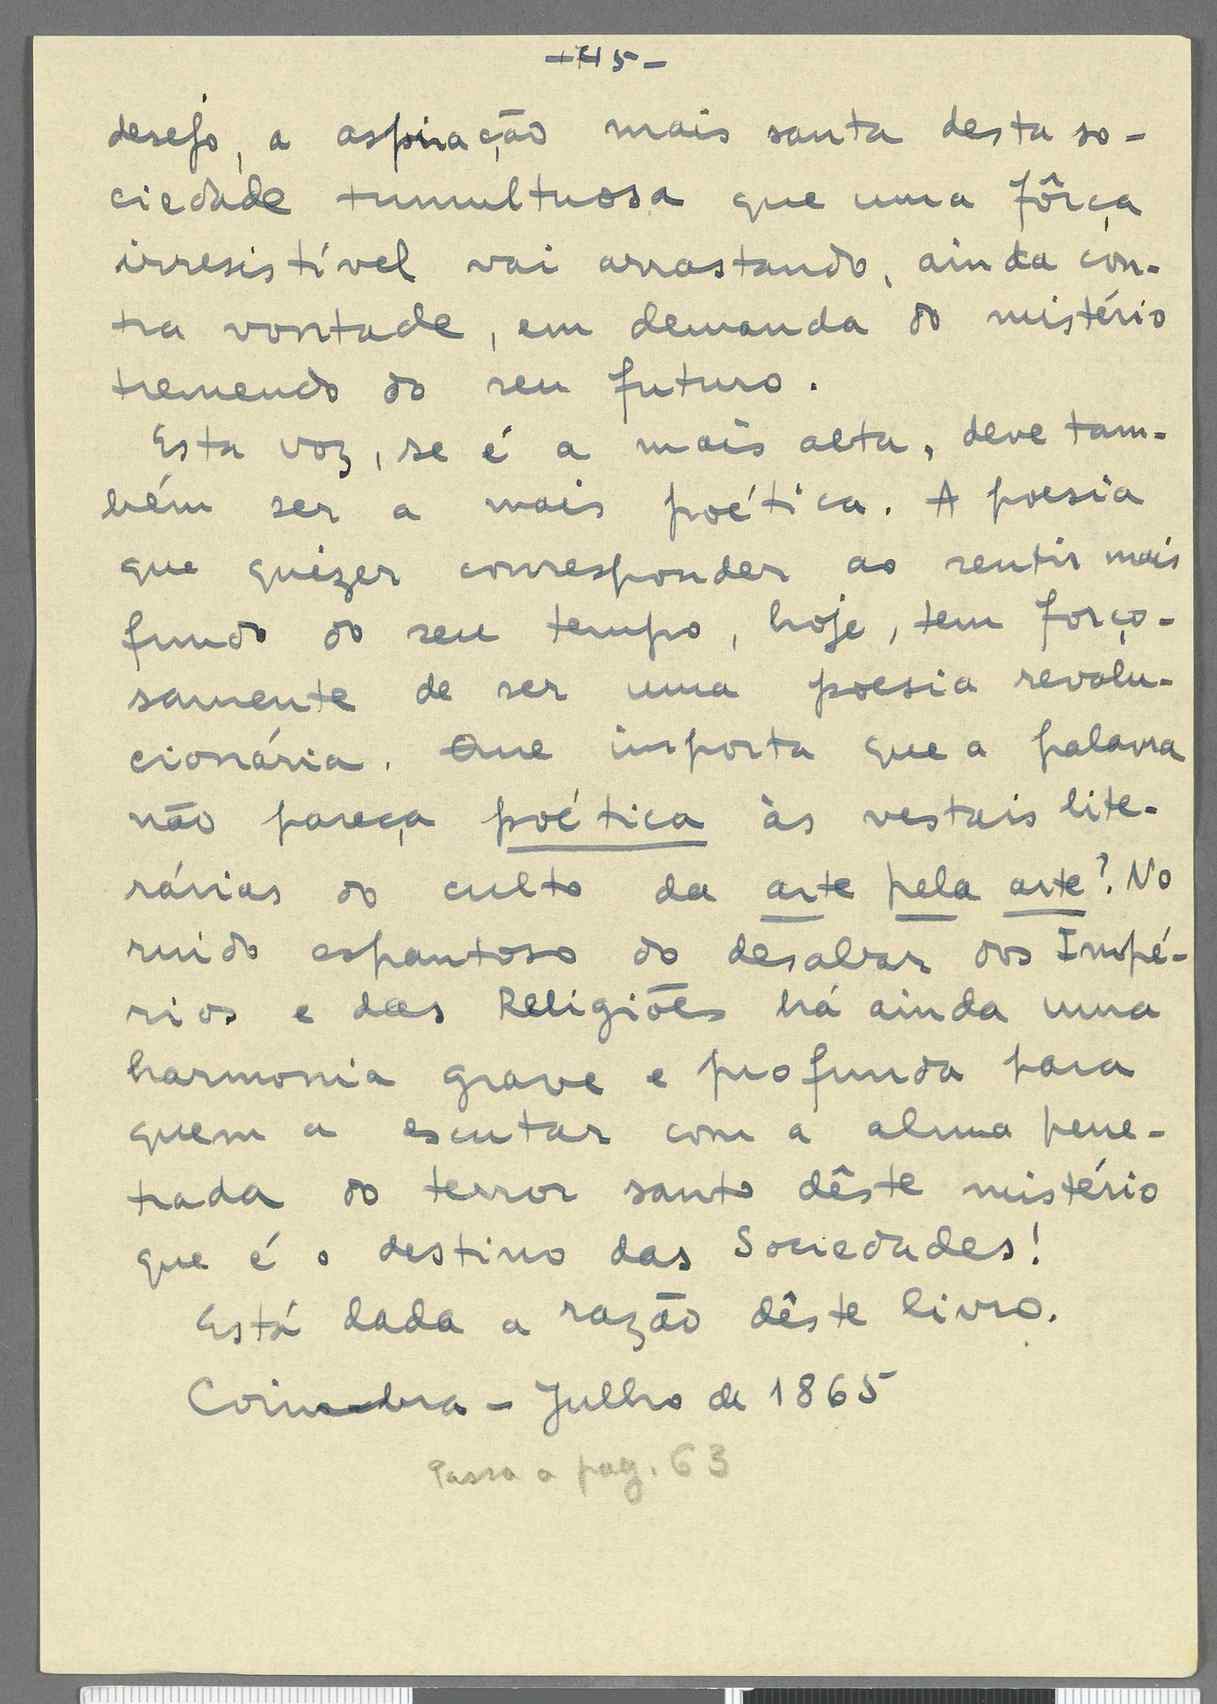 -45-
desejo, a aspiração mais santa desta so-
ciedade tumultuosa que uma fôrça
irresistível vai arrastando, ainda con-
tra vontade, em demanda do mistério
tremendo do seu futuro.
Esta voz, se é a mais alta, deve tam-
bém ser a mais poética. A poesia
que quizer corresponder ao sentir mais
fundo do seu tempo, hoje, tem forço-
samente de ser uma poesia revolu-
cionária. Que importa que a palavra
não pareça poética às vestais lite-
rárias do culto da arte pela arte? No
ruido espantoso do desabar dos Impé-
rios e das Religiões há ainda uma
harmonia grave e profunda para
quem a escutar com a alma pene-
trada do terror santo dêste mistério
que é o destino das Sociedades!
Está dada a razão dêste livro.
Coimbra - Julho de 1865
Passa a pag. 63